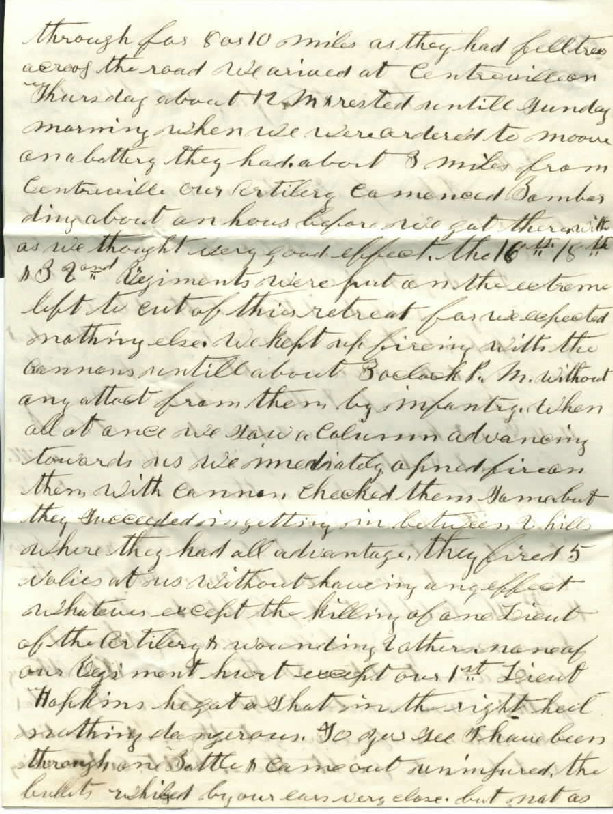 through for 8 or 10 miles as they had fell trees
across the road We arived at Centreville on
Thursday about 12, M & rested untill Sunday
morning when we were ordered to moove
on a battery they had about 3 miles from
Centreville our Artilery Comenced Bombar
ding about an hour before we got there with
as we thought very good effect. the 16th 18th
& 32nd Regiments were put on the extreme
left to cut of their retreat for we expected
nothing else. We kept up fireing with the
cannons untill about 3 oclock P. M. without
any attact from them by infantry. When
all at once we saw a Column advancing
towards us We imediately opned fire on
them with Cannon Checked them Some but
they Succeeded in getting in between 2 hills
where they had all advantage, they fired 5
volies at us without haveing any effect
whatever except the killing of one Lieut
of the Artilery & wounding 2 others none of
our Regiment hurt except our 1st Lieut
Hopkins he got a Shot in the right heel
nothing dangerous. So you See I have been
through one Battle & came out uninjured, the
bullets whiled by our ears very close. but not as